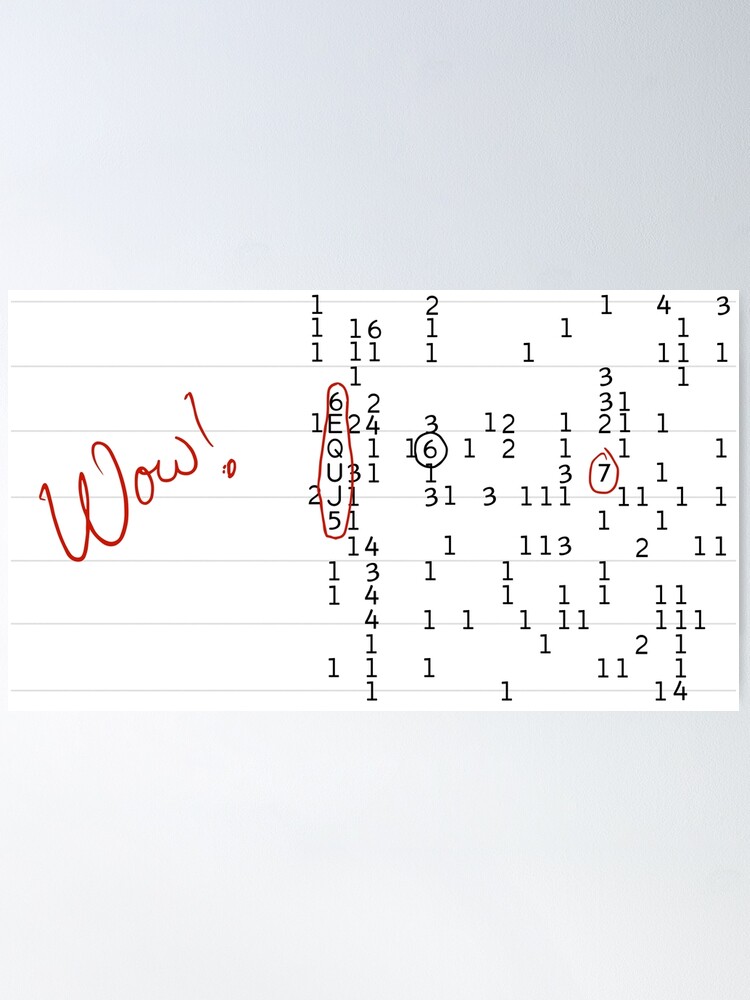 Wow!
1 2 1 4 3
1 16 1 1 1
1 11 1 1 11 1
1 3 1
6 2 31
1E24 3 12 1 21 1
Q 1 16 1 2 1 1 1
U31 1 3 7 1
2J1 31 3 111 11 1 1
51 1 1
14 1 113 2 11
1 3 1 1 1
1 4 1 1 1 11
4 1 1 1 11 111
1 1 2 1
1 1 1 11 1
1 1 14